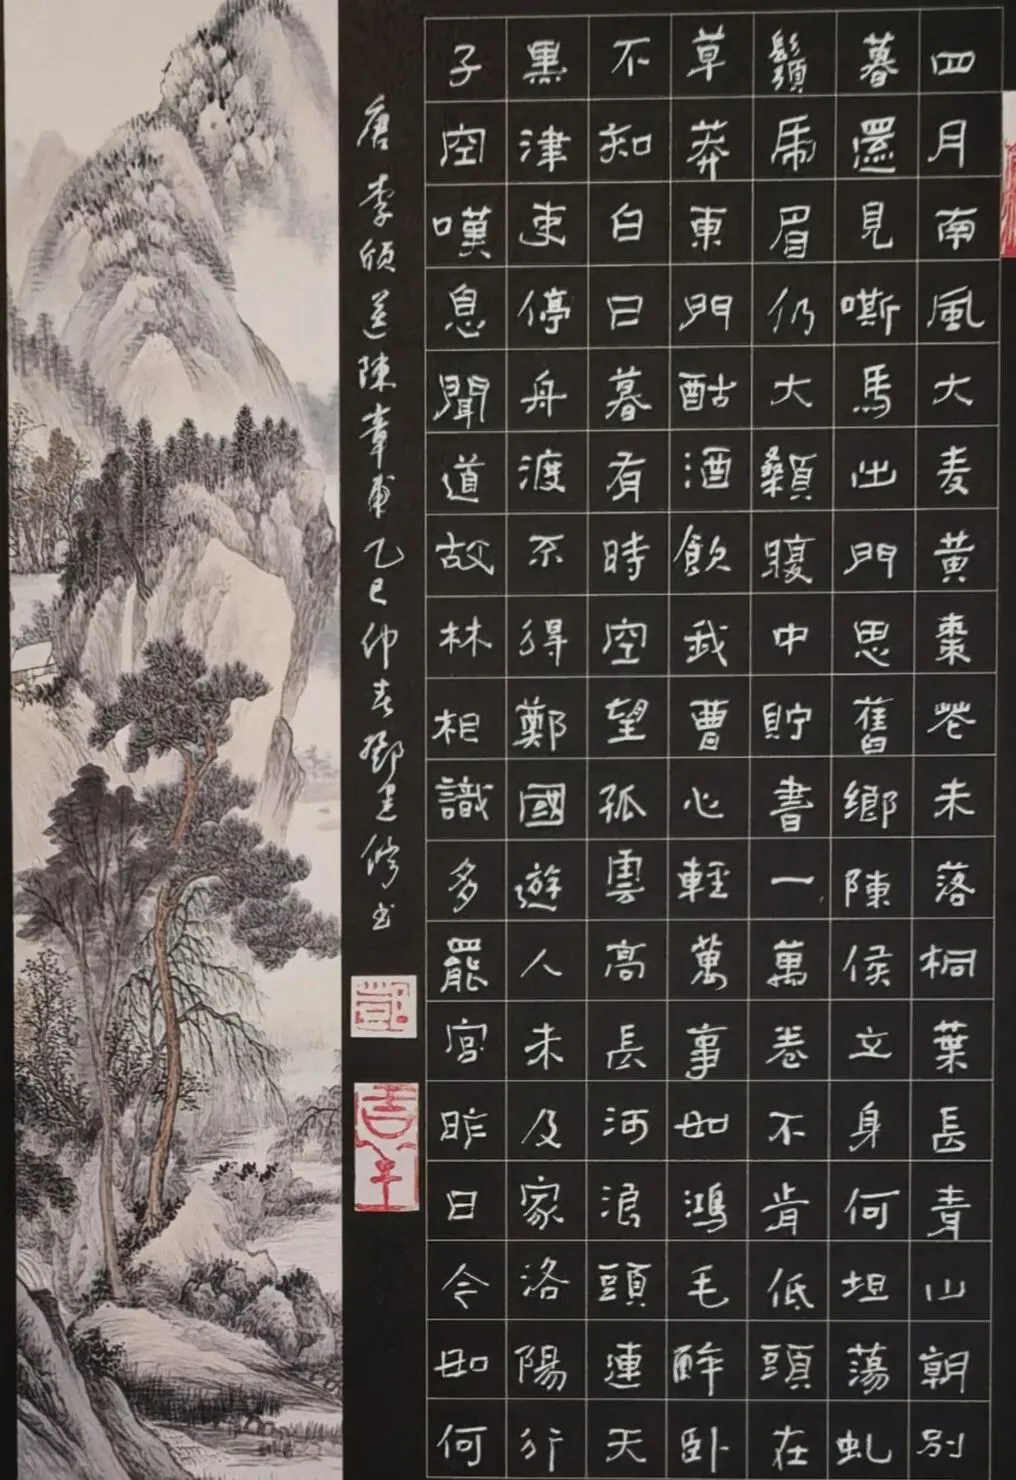 四月南風大麦黄棗花未落桐葉長青山朝別
暮還見嘶馬出門思舊鄉陳侯立身何坦蕩虬
鬚虎眉仍大顙腹中貯書一萬卷不肯低頭在
草莽東門酤酒飲我曹心輕萬事如鴻毛醉卧
不知白日暮有時空望孤雲高長河浪頭連天
黑津吏停舟渡不得鄭國遊人未及家洛陽行
子空嘆息聞道故林相識多罷官昨日今如何
唐李頎送陳章甫乙巳仲春鄧建修书
鄧